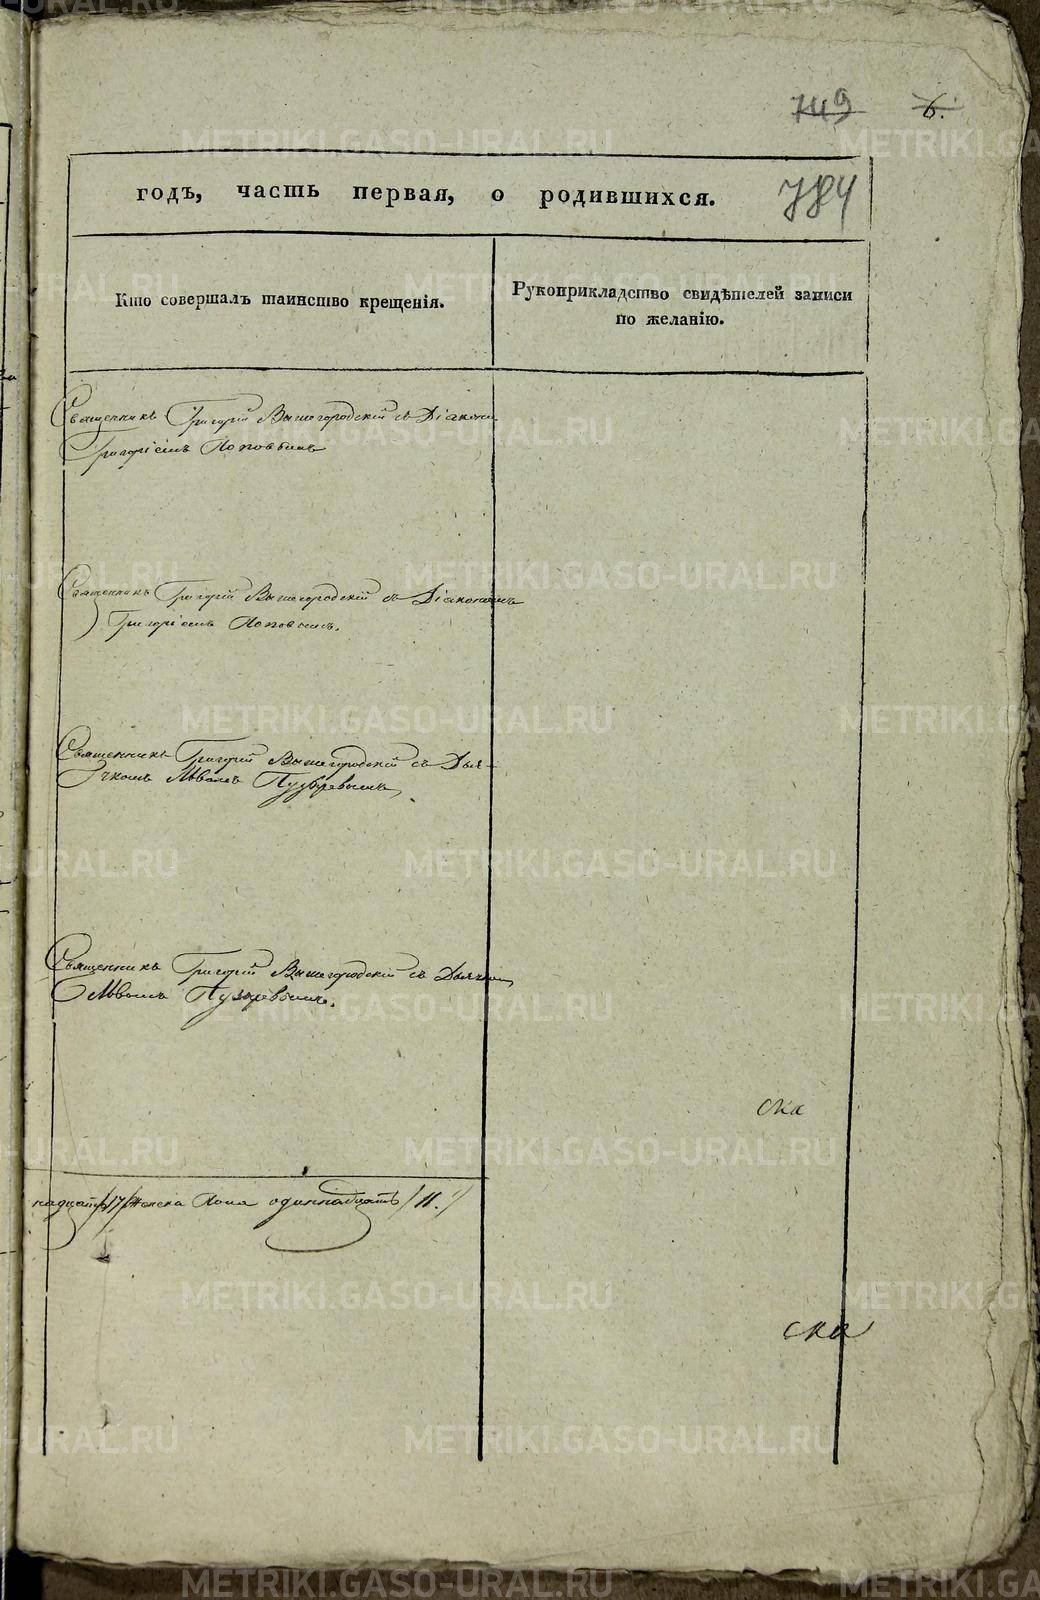 749 6.
годъ, часть первая, о родившихся. 784
Кто совершалъ таинство крещенія.
Рукоприкладство свидѣтелей записи
по желанію.
Священникъ Григорій Вышегородскій съ Діакономъ
Григоріемъ Поповымъ
Священникъ Григорій Вышегородскій съ Діакономъ
Григоріемъ Поповымъ.
Священникъ Григорій Вышегородскій съ Дья-
чкомъ Львомъ Пузыревымъ,
Священникъ Григорій Вышегородскій съ Дьячкомъ
Львомъ Пузыревымъ.
ска
надцать /17/ Женска Пола одиннадцать /11./
ска
METRIKI.GASO-URAL.RU